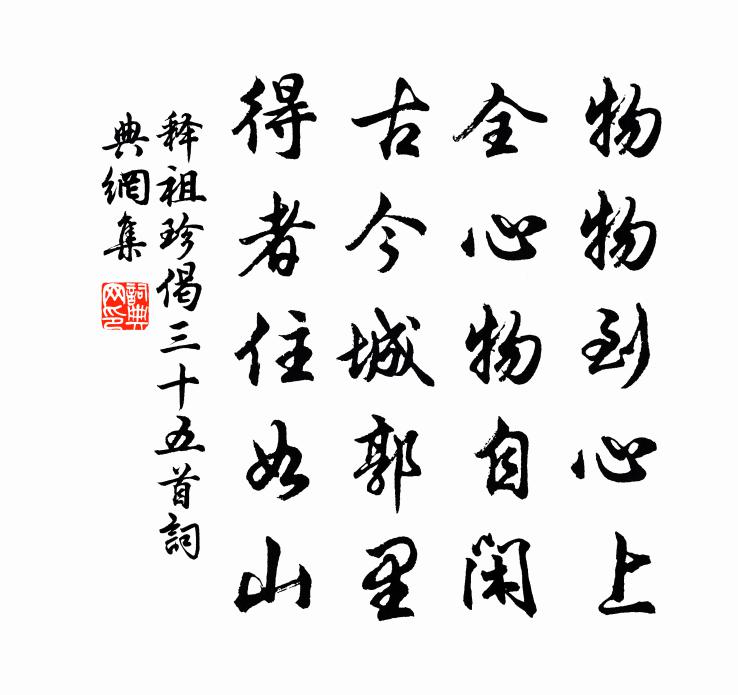 物物到心上
全心物自闲
古今城郭里
得者住如山
释祖珍偈三十五首詞
典網集
詞典
网印